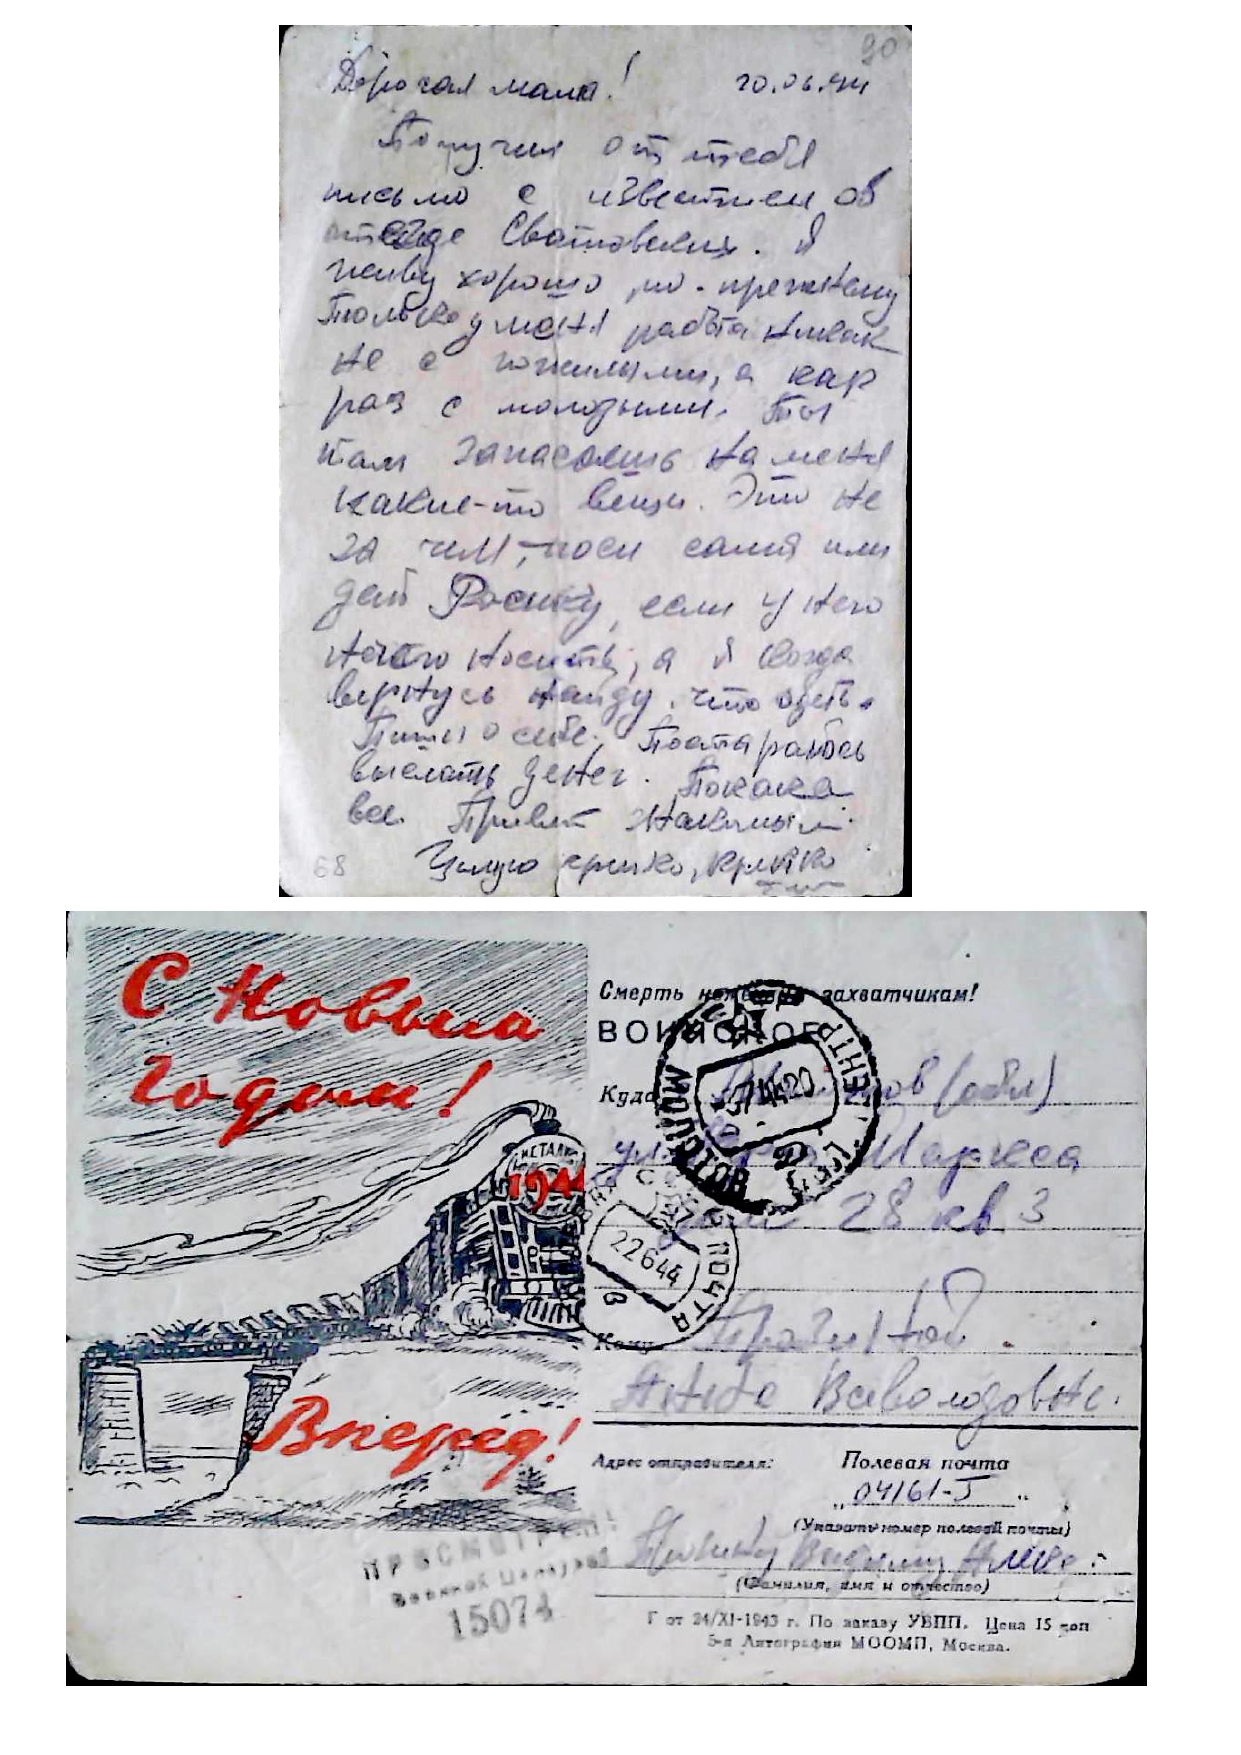 90
Дорогая мама! 20.06.44
Получил от тебя
письмо с известием об
отъезде Сватовских. Я
живу хорошо, по-прежнему
Только у меня работа никак
не с пожилыми, а как
раз с молодыми. Ты
там запасаешь на меня
какие-то вещи. Это не
за чем, носи сама или
дай Росику, если у него
нечего носить, а я когда
вернусь найду что одеть.
Пиши о себе. Постараюсь
выслать денег. Пока
все. Привет знакомым.
Целую крепко, крепко
68
С Новым
годом!
1944
Вперед!
Смерть немецким захватчикам!
ВОИНСКОЕ
Куда Молотов (обл)
ул Карла Маркса
дом 28 кв 3
Кому
Анне Всеволодовне.
Адрес отправителя: Полевая почта
„04161-I“
(Указать номер полевой почты)
(Фамилия, имя и отчество)
Г от 24/XI-1943 г. По заказу УВПП. Цена 15 коп
5-я Литография МООМП, Москва.
МОЛОТОВ
ПОЧТА
22644
ПРОСМОТРЕНО
Военной Цензурой
15074